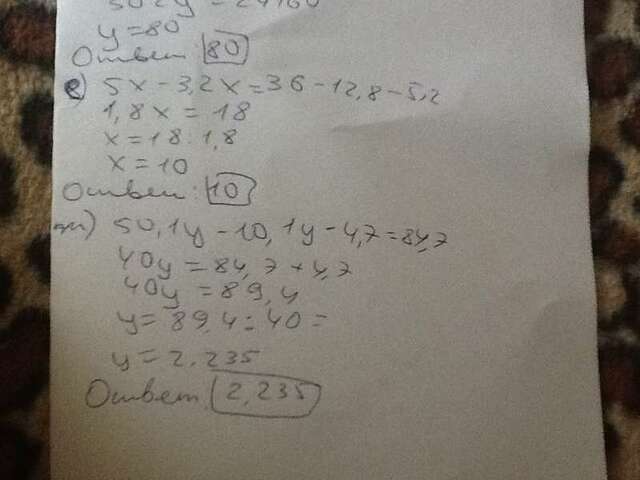 y=80
Ответ 80
е) 5x-3,2x=36-12,8-5,2
1,8x=18
x=18:1,8
x=10
Ответ: 10
ж) 50,1y-10,1y-4,7=84,7
40y=84,7+4,7
40y=89,4
y=89,4:40=
y=2,235
Ответ 2,235